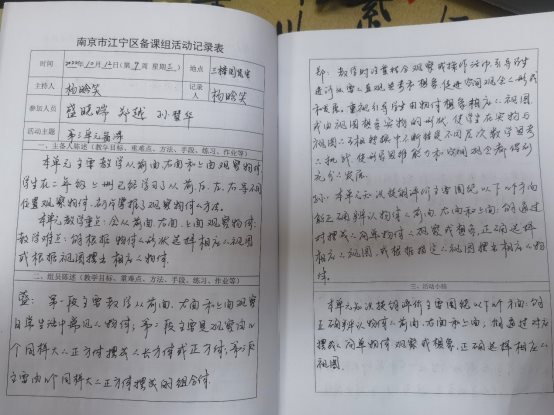 南京市江宁区备课组活动记录表
时间 2020年10月12日(第7周 星期三) 地点 三楼阅览室
主持人 杨晗笑 记录人 杨晗笑
参加人员 郑越 孙琴华
活动主题 第三单元备课
一、主备人陈述(教学目标、重难点、方法、手段、练习、作业等)
本单元主要教学从前面、右面和上面观察物体,
学生在二年级上册已经学习了从前、后、左、右等不同
位置观察物体,初步掌握了观察物体的方法。
本单元教学重点:会从前面、右面、上面观察物体;
教学难点:能根据物体的形状选择相应的视图
或根据视图摆出相应的物体。
二、组员陈述(教学目标、重难点、方法、手段、练习、作业等)
第一段主要教学从前面、右面和上面观察
日常生活中常见的物体;第二段主要是观察由几
个同样大的正方体摆成的长方体或正方体;第三段
主要由几个同样大的正方体摆成的组合体。
郑:教学时注意结合观察或操作活动,引导学生
进行从直观思考和想象,促进空间观念的形成
和发展。重视引导学生由物体想象相应的视图
或由视图想象实物的形状,使学生在实物与
视图的相互转换中不断接受不同层次数学思考
的挑战,使形象思维能力和空间观念都得到
充分发展。
孙:本单元知识技能评价主要围绕以下几个方面:
能正确辨认物体的前面、右面和上面;能通过
对摆成的简单物体的观察或想象,正确选择
相应的视图,或根据指定的视图摆出相应的物
体。
三、活动小结
本单元知识技能评价主要围绕以下几个方面:能
正确辨认物体的前面、右面和上面,能通过对
摆成的简单物体观察或想象,正确选择相应的
视图。